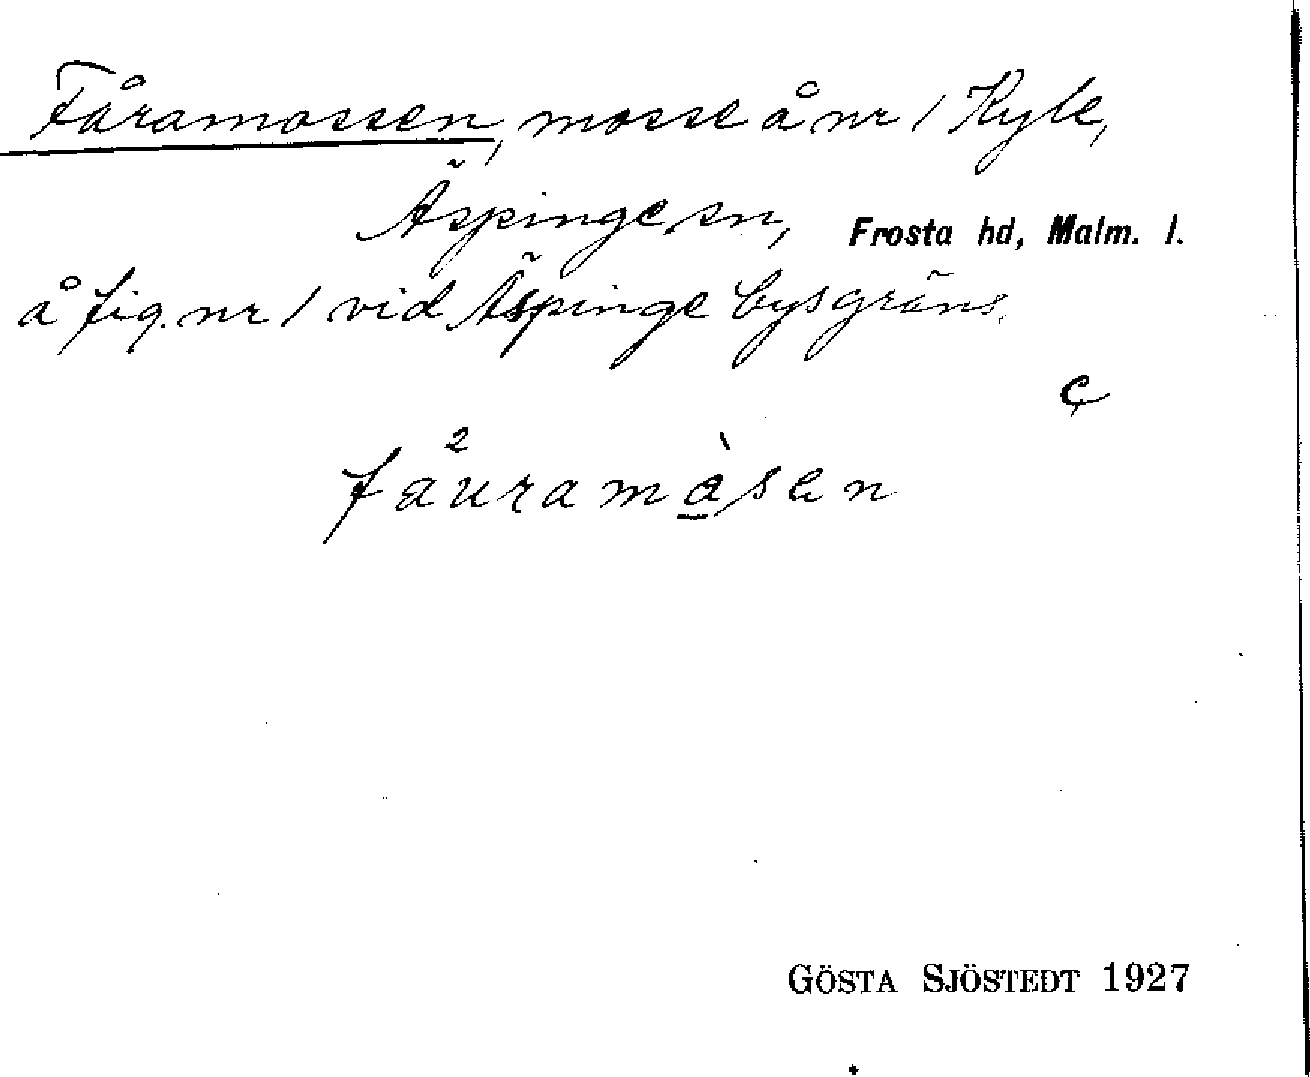 Fåramossen, mosse å nr 1 Kyle,
Äspinge sn, Frosta hd, Malm. l.
å fig. nr 1 vid Äspinge bys gräns.
C
fåuramåsen
GÖSTA SJÖSTEDT 1927